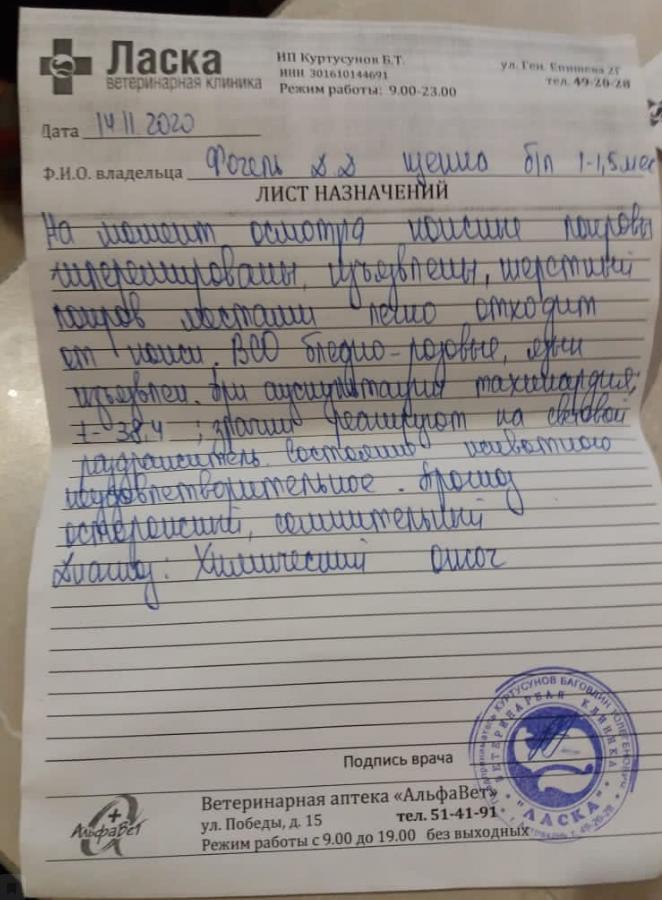 Ласка
ветеринарная клиника
ИП Куртусунов Б.Т.
ИНН 301610144691
Режим работы: 9.00-23.00
ул. Ген. Епишева 2
тел. 49-20-28
Дата 14.11.2020
Ф.И.О. владельца Фогель Д.Д щенко б/п 1-1,5 мес
ЛИСТ НАЗНАЧЕНИЙ
На момент осмотра кожные покровы
гиперемированы, изъязвлены, шерстный
покров местами легко отходит
от кожи. ВСО бледно-розовые, язык
изъязвлен. При аускультации тахикардия;
t- 38,4 ; зрачки реагируют на световой
раздражитель. состояние животного
неудовлетворительное. Прогноз
осторожный, сомнительный
Диагноз: Химический ожог
Подпись врача
КУРТУСУНОВ БАГОВДИН
ВЕТЕРИНАРНАЯ КЛИНИКА
"ЛАСКА"
т. 49-20-28
АльфаВет
Ветеринарная аптека «АльфаВет»
ул. Победы, д. 15 тел. 51-41-91
Режим работы с 9.00 до 19.00 без выходных